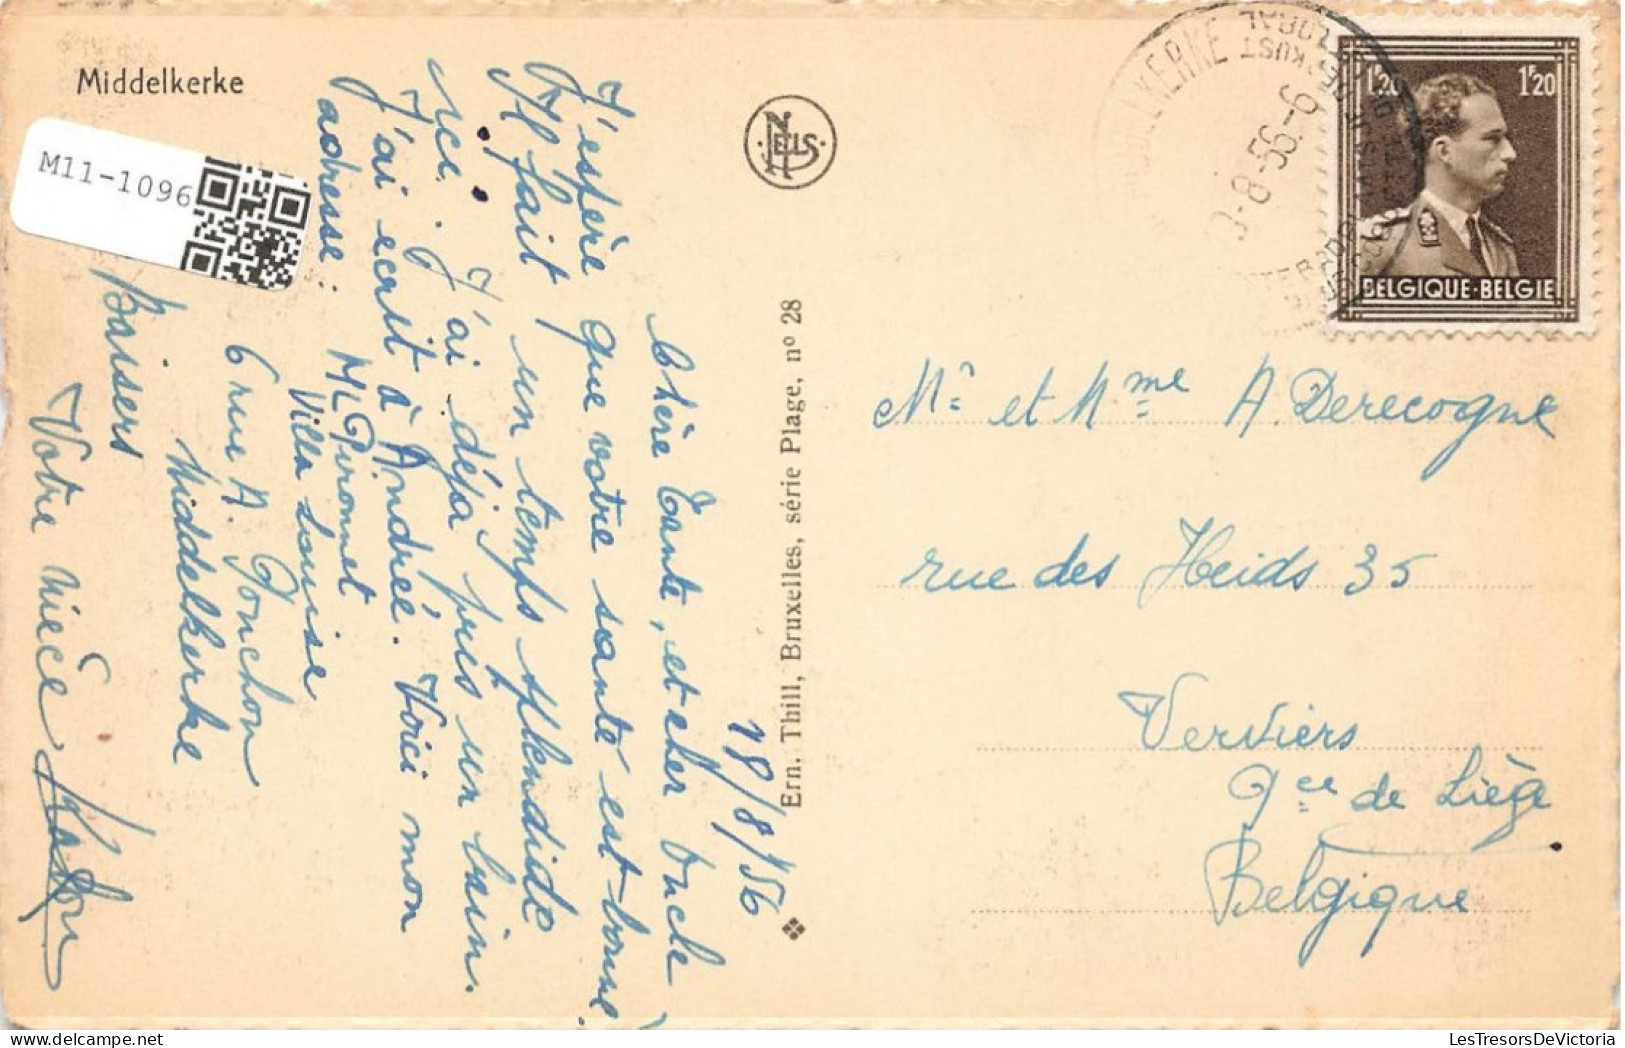 Middelkerke
M11-1096
NELS
18/8/56
Chère Tante, et cher Oncle
J'espère que votre santé est bonne.
Il fait un temps splendide
ici. J'ai déjà pris un bain.
J'ai écrit à Andrée. Voici mon
adresse: M Pironnet
Villa Louise
6 rue A. Ponchon
Middelkerke
Baisers
Votre nièce
Ern. Thill, Bruxelles, série Plage, nº 28
KERKE
KUST
-8-56.-9
1F20 1F20
BELGIQUE·BELGIE
Mr et Mme A. Derecogne
rue des Heids 35
Verviers
Pce de Liège
Belgique
LesTresorsDeVictoria